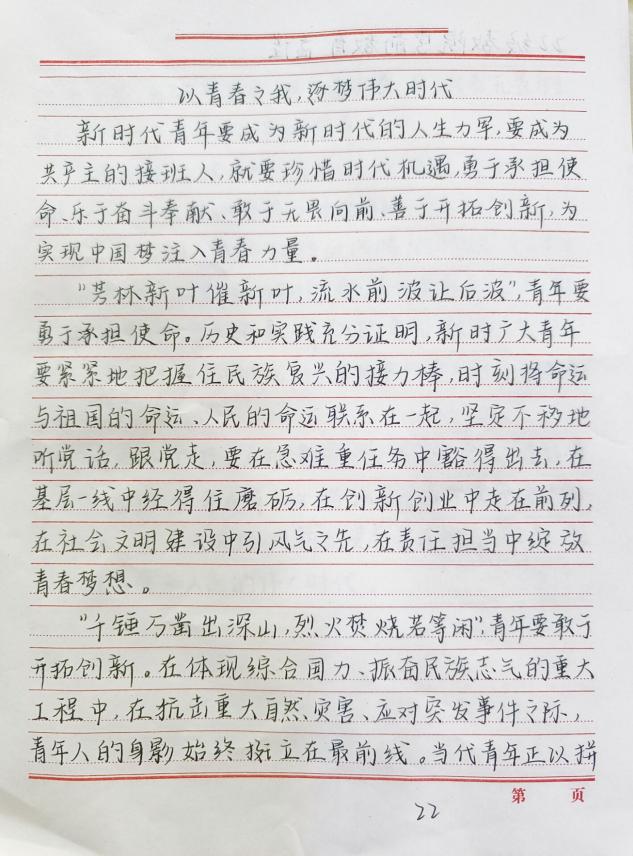 以青春之我，逐梦伟大时代
新时代青年要成为新时代的人生力军，要成为
共产主的接班人，就要珍惜时代机遇，勇于承担使
命、乐于奋斗奉献、敢于无畏向前、善于开拓创新，为
实现中国梦注入青春力量。
“芳林新叶催新叶，流水前波让后波”，青年要
勇于承担使命。历史和实践充分证明，新时广大青年
要紧紧地把握住民族复兴的接力棒，时刻将命运
与祖国的命运、人民的命运联系在一起，坚定不移地
听党话，跟党走，要在急难重任务中豁得出去，在
基层一线中经得住磨砺，在创新创业中走在前列，
在社会文明建设中引风气之先，在责任担当中绽放
青春梦想。
“千锤万凿出深山，烈火焚烧若等闲”，青年要敢于
开拓创新。在体现综合国力、振奋民族志气的重大
工程中，在抗击重大自然灾害、应对突发事件之际，
青年人的身影始终挺立在最前线。当代青年正以拼
第 页
22